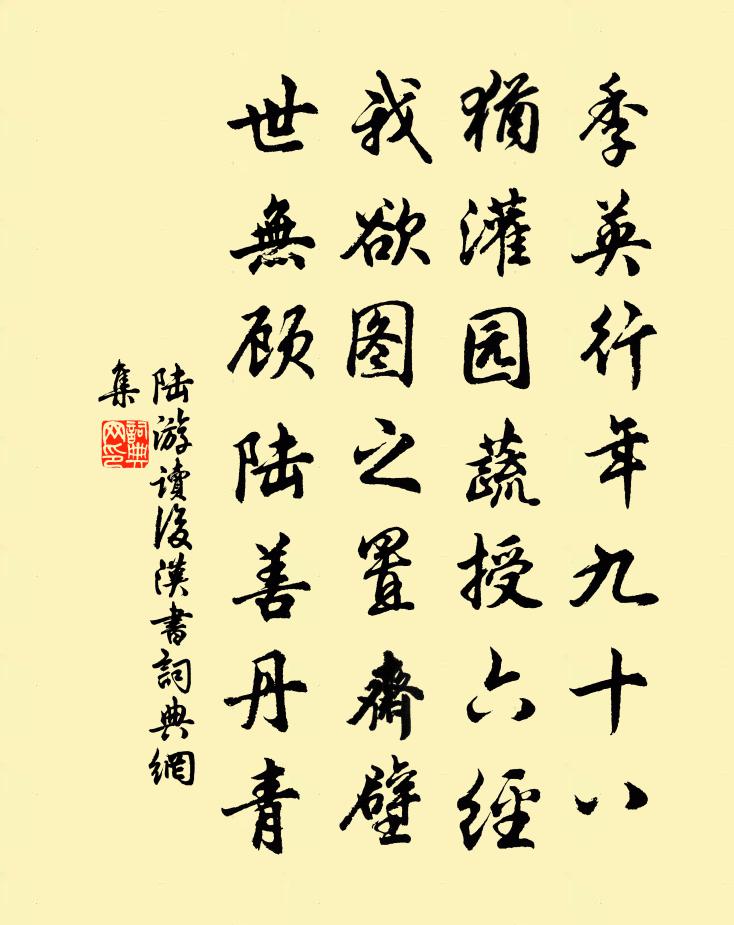 季英行年九十八
猶灌园蔬授六經
我欲图之置齋壁
世無顾陆善丹青
陆游讀後漢書詞典網
集
詞典
网印